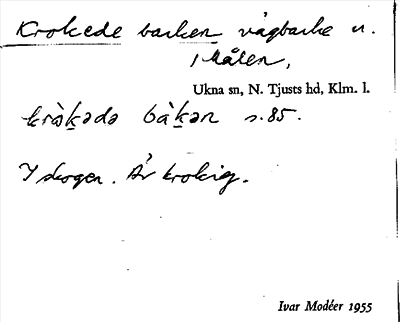 Krokede backen vägbacke n.
i Målen,
Ukna sn, N. Tjusts hd, Klm. l.
kròk̠ədə bàk̠ən s. 85.
I skogen. Är krokig.
Ivar Modéer 1955